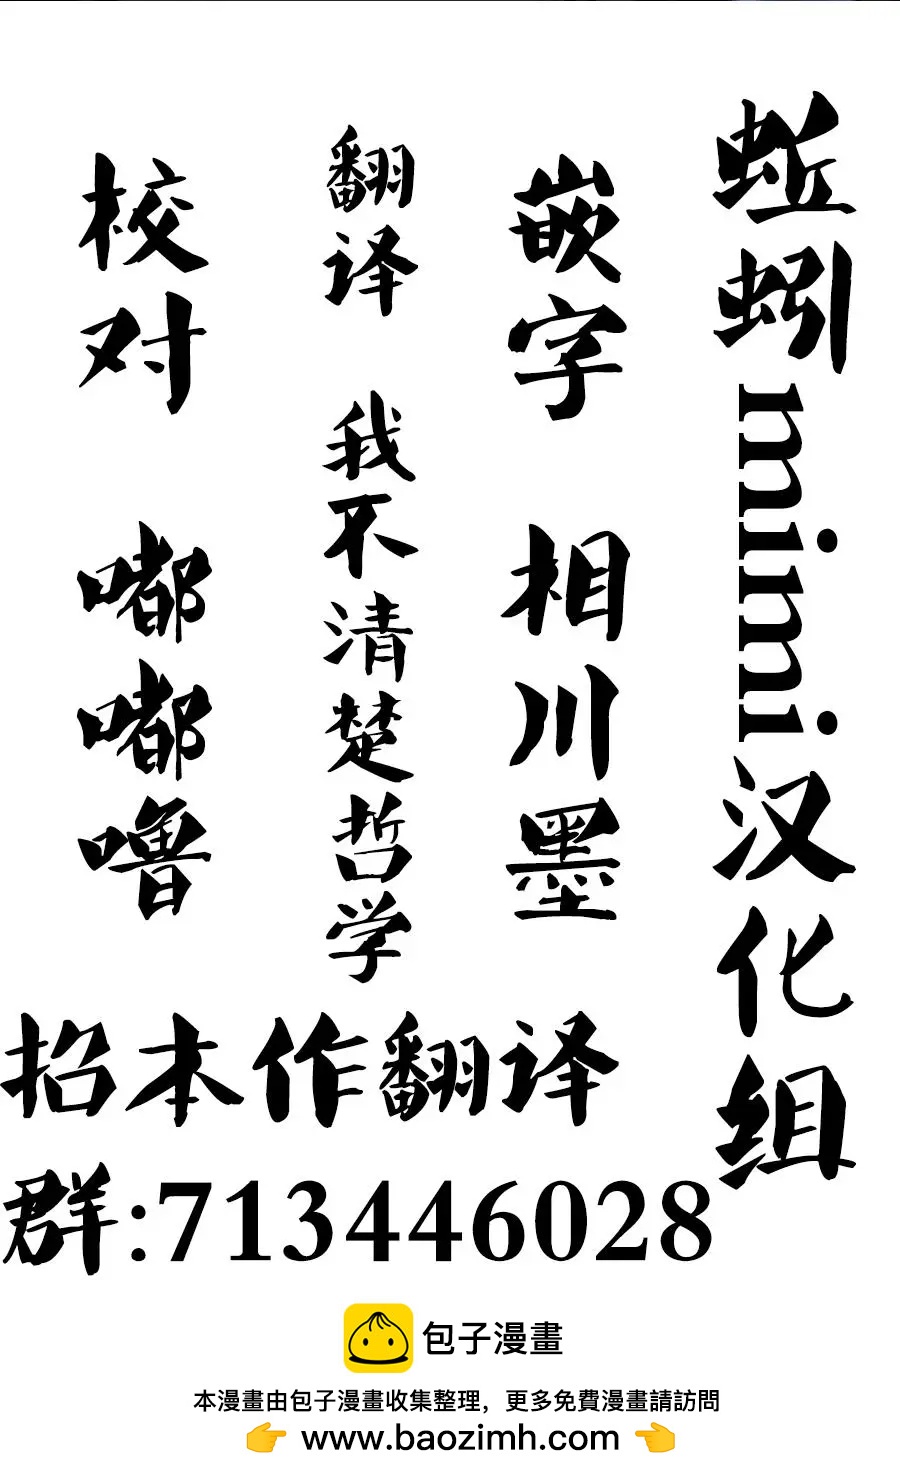 蚯蚓mimi汉化组
嵌字 相川墨
翻译 我不清楚哲学
校对 嘟嘟噜
招本作翻译
群:713446028
包子漫畫
本漫畫由包子漫畫收集整理，更多免費漫畫請訪問
👉 www.baozimh.com 👈